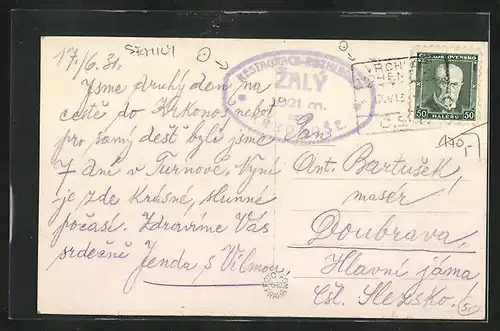 17/6. 31.
SEMILY
Jsme druhý den na
cestě do Krkonoš neboť
pro samý dešť byli jsme
7 dní v Turnově. Nyní
je zde krásné, slunné
počasí. Zdravíme Vás
srdečně Jenda s Vilmou
RESTAURACE-ROZHLEDNA
ŽALÝ
1021 m.
KRKONOŠE.
VRCHL
50 50
HALÉRŮ
170,-
Pan
Ant. Bartušek,
masér
Doubrava,
Hlavní jáma
Čsl. Slezsko.
Sr